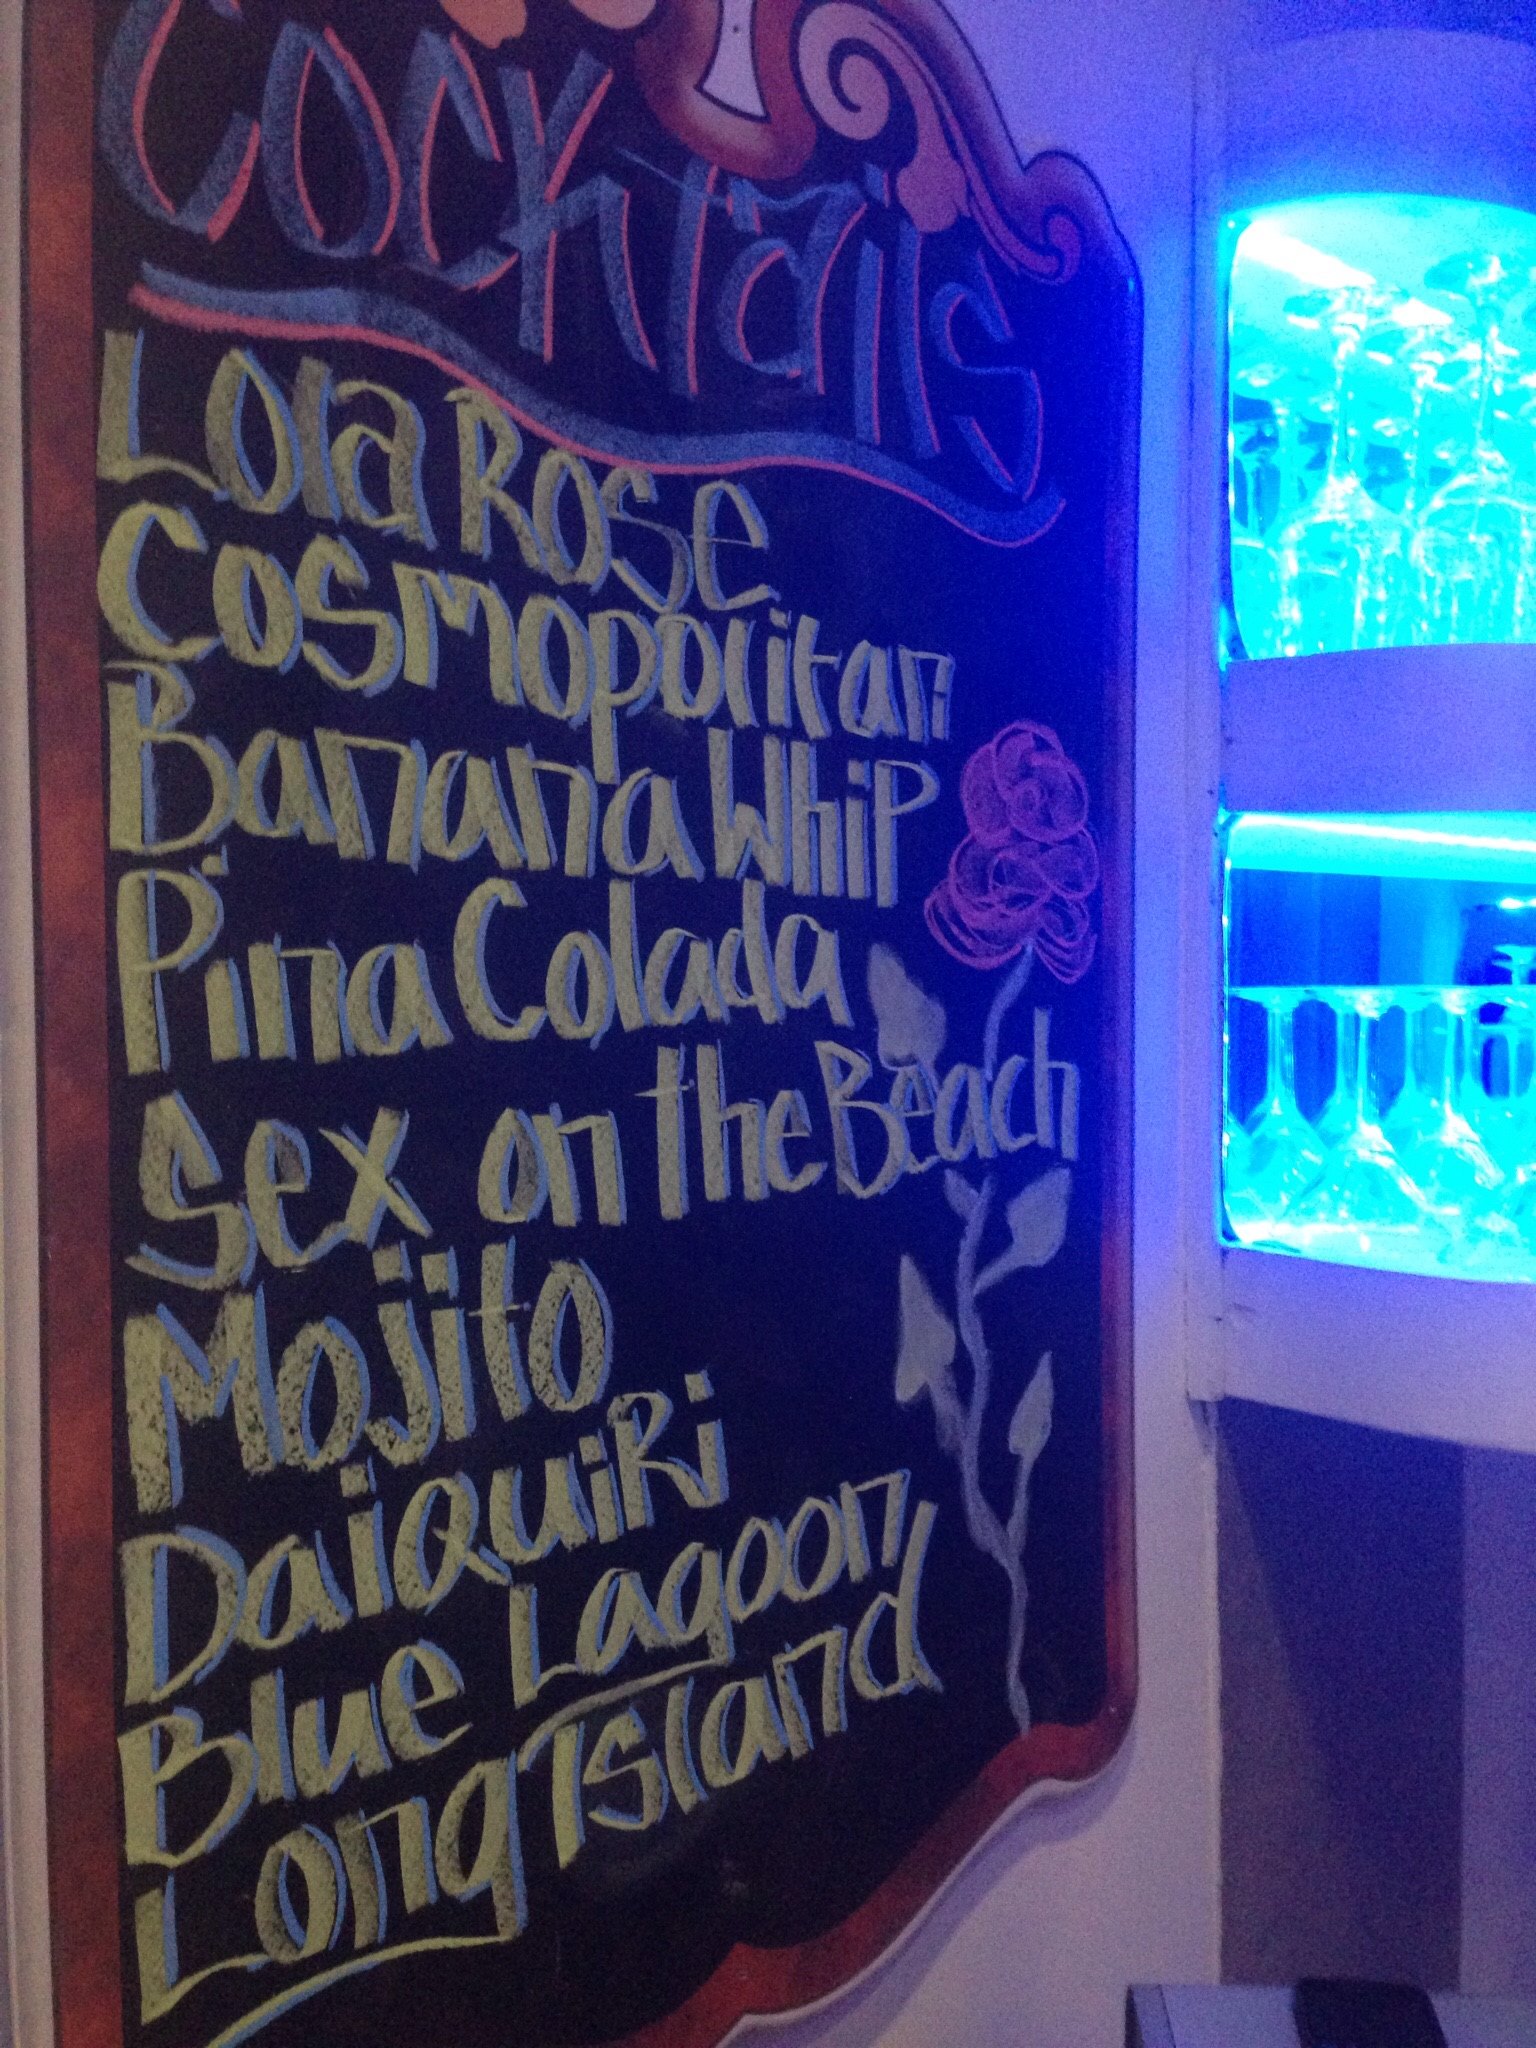 Cocktails
Lola Rose
Cosmopolitan
Banana Whip
Pina Colada
Sex on the Beach
Mojito
DaiQuiRi
Blue Lagoon
Long Island